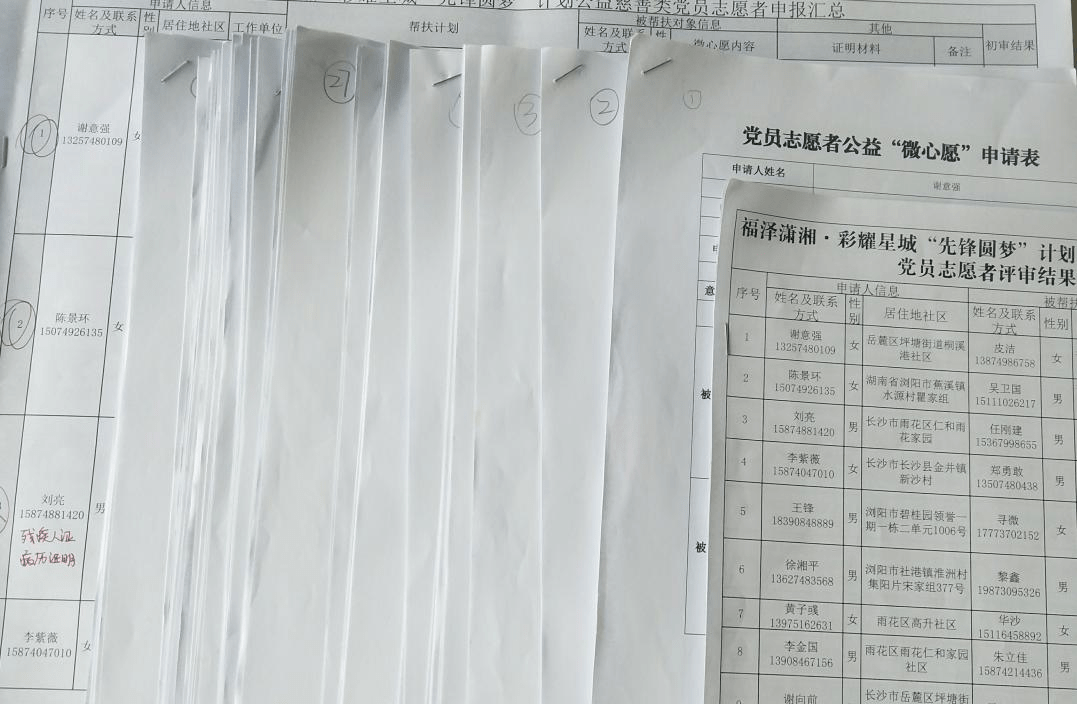 彩耀星城“先锋圆梦”计划公益慈善类党员志愿者申报汇总
序号
申请人信息
姓名及联系方式
性别
居住地社区
工作单位
帮扶计划
被帮扶对象信息
姓名及联系方式
性
微心愿内容
其他
证明材料
备注
初审结果
1
谢意强
13257480109
女
2
陈景环
15074926135
女
刘亮
15874881420
男
残疾人证
病历证明
李紫薇
15874047010
女
27
3
2
1
党员志愿者公益“微心愿”申请表
申请人姓名
谢意强
意
被
被
福泽潇湘·彩耀星城“先锋圆梦”计划
党员志愿者评审结果
序号
申请人信息
被帮扶
姓名及联系方式
性别
居住地社区
姓名及联系方式
性别
1
谢意强
13257480109
女
岳麓区坪塘街道桐溪
港社区
皮洁
13874986758
女
2
陈景环
15074926135
女
湖南省浏阳市蕉溪镇
水源村瞿家组
吴卫国
15111026217
男
3
刘亮
15874881420
男
长沙市雨花区仁和雨
花家园
任刚建
15367998655
男
4
李紫薇
15874047010
女
长沙市长沙县金井镇
新沙村
郑勇敢
13507480438
男
5
王锋
18390848889
男
浏阳市碧桂园领誉一
期一栋二单元1006号
寻微
17773702152
女
6
徐湘平
13627483568
男
浏阳市社港镇淮洲村
集阳片宋家组377号
黎鑫
19873095326
男
7
黄子彧
13975162631
女
雨花区高升社区
华沙
15116458892
女
8
李金国
13908467156
男
雨花区雨花仁和家园
社区
朱立佳
15874214436
男
谢向前
长沙市岳麓区坪塘街